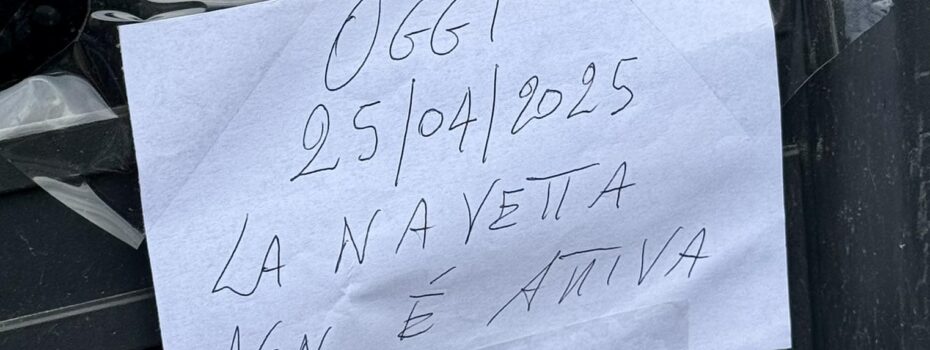 OGGI
25/04/2025
LA NAVETTA
NON È ATTIVA